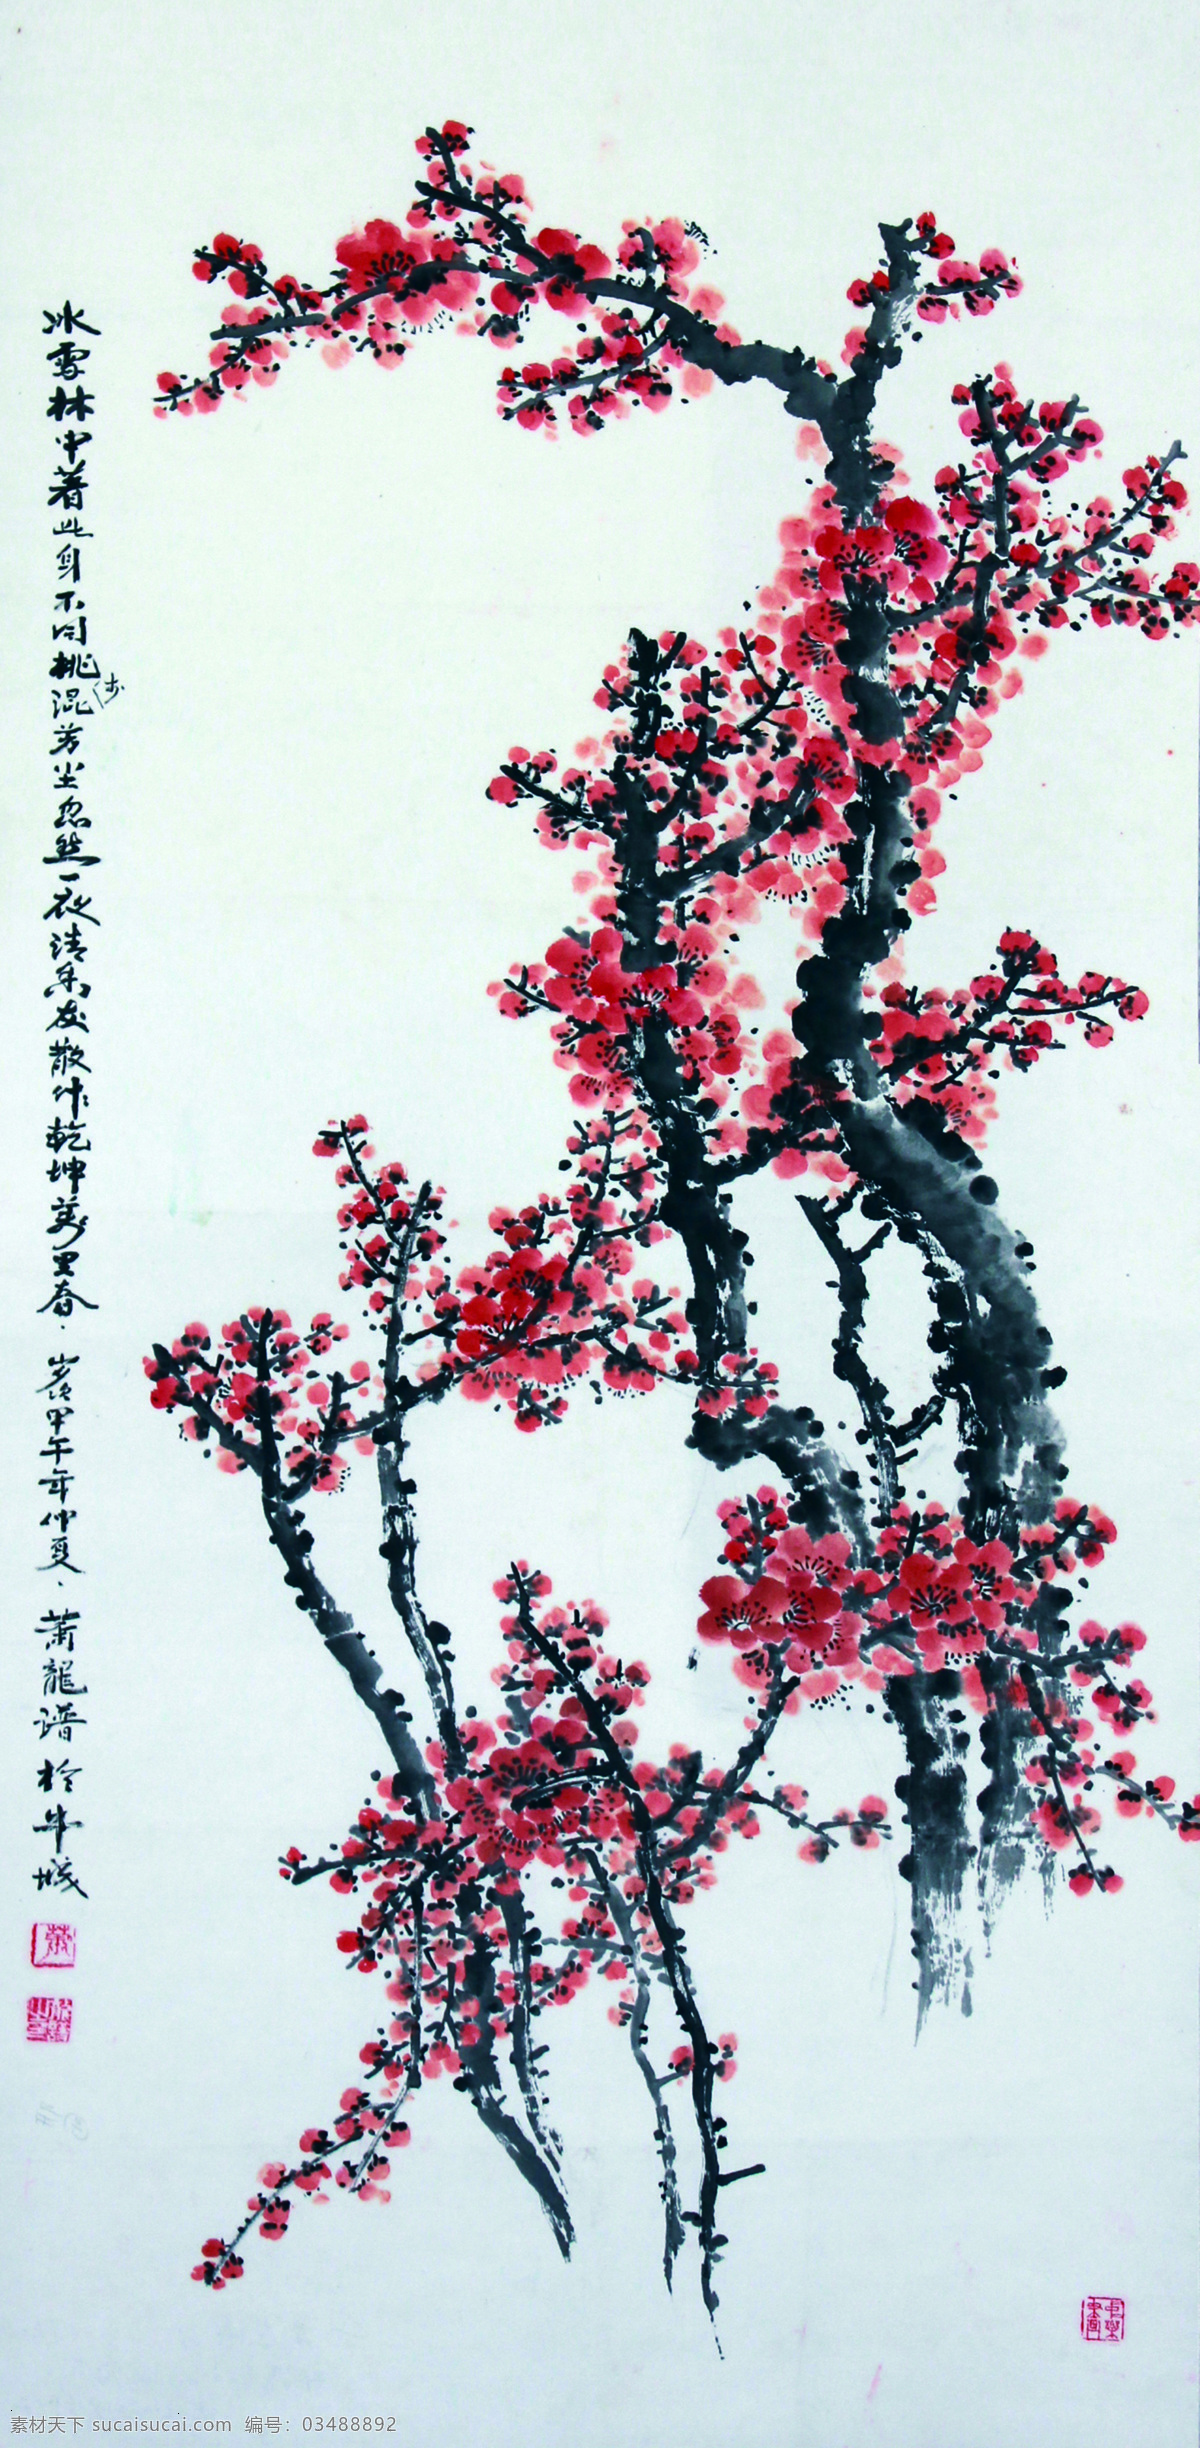 冰雪林中着此身不同桃混芳尘忽然一夜清香发散作乾坤萬里春·歲甲午年仲夏·萧龍谱於牛城
素材天下 sucaisucai.com 编号：03488892